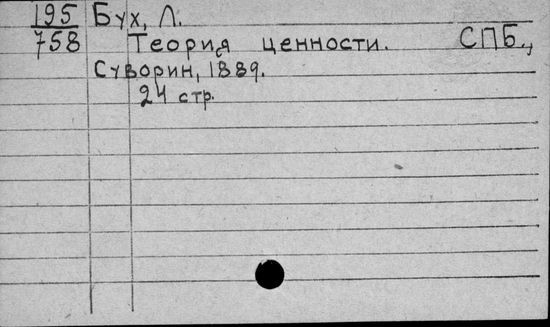 195 Бух, Л.
758 Теория ценности. СПБ.,
Суворин, 1889.
24 стр.